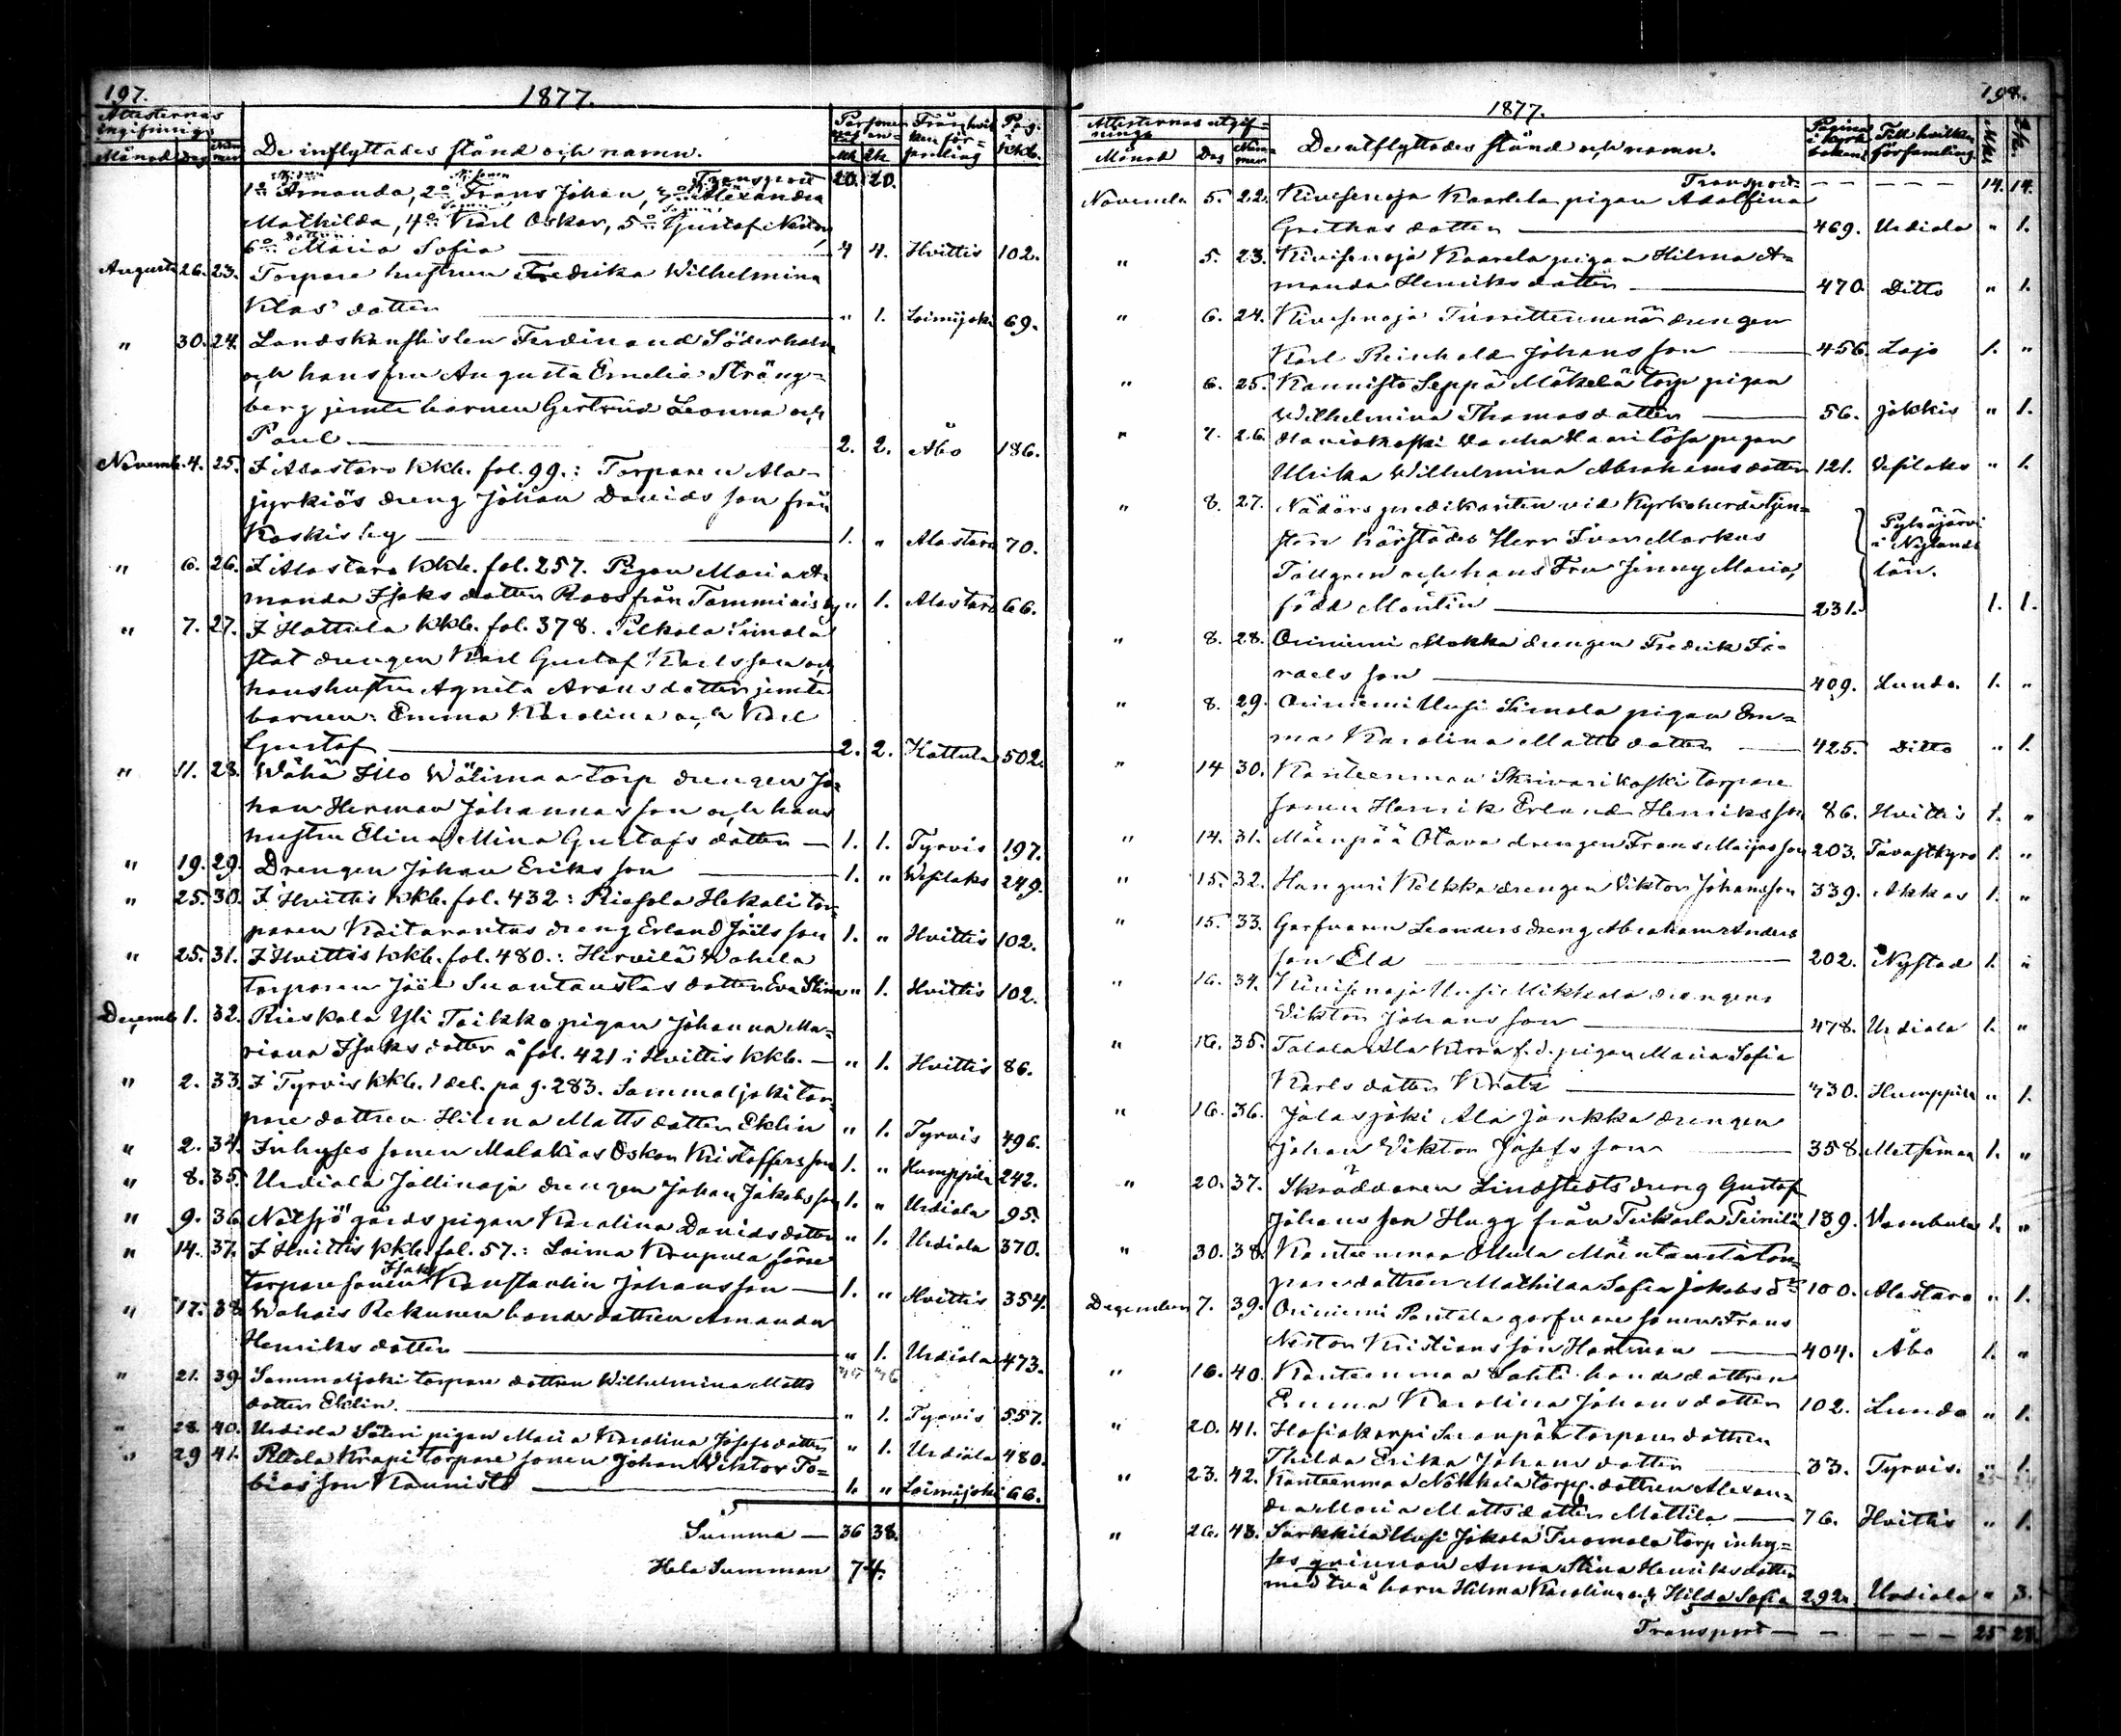 197.
1877.
Attesternas ingifnings
Månad Dag Nummer De inflyttades stånd och namn. Personernas antal Mk Qk Från hvilken församling Pag. i kkb.
Transport 20. 20.
1o Amanda, 2o Frans Johan, 3o Alexandra
Mathilda, 4o Karl Oskar, 5o Gustaf Nestor,
6o Maria Sofia 4 4. Hvittis 102.
Augusti 26. 23. Torpare hustrun Fredrika Wilhelmina
Klas dotter " 1. Loimijoki 69.
" 30. 24. Landskanslisten Ferdinand Söderholm
och hans fru Augusta Emelie Sträng=
berg jemte barnen Gertrud Leonna och
Paul 2. 2. Åbo 186.
Novemb. 4. 25. I Alastaro kkb. fol. 99.: Torparen Ala-
jyrkiös dreng Johan Davids son från
Koskis by 1. " Alastaro 70.
" 6. 26. I Alastaro kkb. fol. 257. Pigan Maria A=
manda Isaks dotter Roos från Tammiais by " 1. Alastaro 66.
" 7. 27. I Hattula kkb. fol. 378. Pelkola Simola
stat drengen Karl Gustaf Karlsson och
hans hustru Agneta Arons dotter jemte
barnen: Emma Karolina och Karl
Gustaf 2. 2. Hattula 502.
" 11. 28. Wähä Iso Wälimaa torp drengen Jo=
han Herman Johannas son och hans
hustru Elina Mina Gustafs dotter 1. 1. Tyrvis 197.
" 19. 29. Drengen Johan Eriks son 1. " Wesilaks 249.
" 25. 30. I Hvittis kkb. fol. 432: Riesola Hekali tor=
paren Kaitarantas dreng Erland Joels son 1. " Hvittis 102.
" 25. 31. I Hvittis kkb. fol. 480.: Hirvilä Wahela
torparen Joel Suontaustas dotter Eva Stina " 1. Hvittis 102.
Decemb. 1. 32. Rieskala Yli Toikko pigan Johanna Ma=
riana Isaks dotter å fol. 421 i Hvittis kkb. " 1. Hvittis 86.
" 2. 33. I Tyrvis kkb. 1 del. pag. 283. Sammaljoki tor=
pare dottren Hilma Matts dotter Eklin " 1. Tyrvis 496.
" 2. 34. Inhyses sonen Malakias Oskar Kristoffersson 1. " Humppila 242.
" 8. 35. Urdiala Jallinoja drengen Johan Jakobsson 1. " Urdiala 95.
" 9. 36. Notsjö gårds pigan Karolina Davids dotter " 1. Urdiala 370.
" 14. 37. I Hvittis kkb. fol. 57.: Loima Krupula förre
torpare sonen Isak Konstantin Johansson 1. " Hvittis 354.
" 17. 38. Wahais Rekunen bonde dottren Amanda
Henriks dotter " 1. Urdiala 473.
" 21. 39. Sammaljoki torpare dottren Wilhelmina Matts
dotter Eklin. " 1. Tyrvis 557.
" 28. 40. Urdiala Säteri pigan Maria Karolina Josefs dotter " 1. Urdiala 480.
" 29 41. Pellola Krapi torpare sonen Johan Viktor To=
bias son Kaunisto 1. " Loimijoki 66.
Summa 36 38.
Hela Summan 74.
198.
1877.
Attesternas utgif=nings
Månad Dag Nummer De utflyttades stånd och namn. Pagina i kyrkoboken Till hvilken församling Mk. Qk.
Transport 14. 14.
Novemb. 5. 22. Kivisenoja Kaarela pigan Adolfina
Grethas dotter 469. Urdiala " 1.
" 5. 23. Kivisenoja Kaarela pigan Hilma A=
manda Henriks dotter 470. Ditto " 1.
" 6. 24. Kivisenoja drengen
Karl Reinhold Johans son 456. Lojo 1. "
" 6. 25. Kannisto Seppä Mäkelä torp pigan
Wilhelmina Thomas dotter 56. Jokkis " 1.
" 7. 26. pigan
Ulrika Wilhelmina Abrahams dotter 121. Vesilaks " 1.
" 8. 27. Nådårs predikanten vid Kyrkoherde tjen=
sten härstädes Herr Ivar Markus
Tallgren och hans Fru Jenny Maria,
född Montin 231. Pyhäjärvi i Nylands län. 1. 1.
" 8. 28. Oriniemi Mokka drengen Fredrik Is=
raels son 409. Lundo. 1. "
" 8. 29. Oriniemi Uusi Simola pigan Em=
ma Karolina Matts dotter 425. Ditto " 1.
" 14 30. Kanteenmaa Skrivarikoski torpare
sonen Henrik Erland Henriksson 86. Hvittis 1. "
" 14. 31. Mäenpää Otava drengen Frans Maijas son 203. Tavastkyro 1. "
" 15. 32. Hanguri Kelkka drengen Viktor Johansson 339. Akkas 1. "
" 15. 33. Garfvaren Leanders dreng Abraham Anders
son Eld 202. Nystad 1. "
" 16. 34. Kivisenoja Uusi Mikkola drengen
Viktor Johans son 478. Urdiala 1. "
" 16. 35. Talala Ala Kirra f.d. pigan Maria Sofia
Karls dotter Krats 430. Humppila " 1.
" 16. 36. Jalasjoki Ala Jankka drengen
Johan Viktor Josefs son 358. Metsämaa 1. "
" 20. 37. Skräddaren Lindstedts dreng Gustaf
Johans son Hugg från Teikarla Teinilä 139. Vambula 1. "
" 30. 38. Kanteenmaa Ollila Mäentausta tor=
pare dottren Mathilda Sofia Jakobs dr 100. Alastaro " 1.
December 7. 39. Oriniemi Pantala garfvare sonen Frans
Nestor Kristiansson Hartman 404. Åbo 1. "
" 16. 40. Kanteenmaa Lahti bonde dottren
Emma Karolina Johans dotter 102. Lundo " 1.
" 20. 41. Haviokarpi Suonpää torpare dottren
Thilda Erika Johans dotter 33. Tyrvis. " 1.
" 23. 42. Kanteenmaa Nohkola torp. dottren Alexan=
dra Maria Matts dotter Mattila 76. Hvittis " 1.
" 26. 43. Sarkkila Uusi Jokela Tuomola torp inhy=
ses qvinnan Anna Stina Henriks dotter
med två barn Hilma Karolina och Hilda Sofia 292. Urdiala " 3.
Transport 25 28.